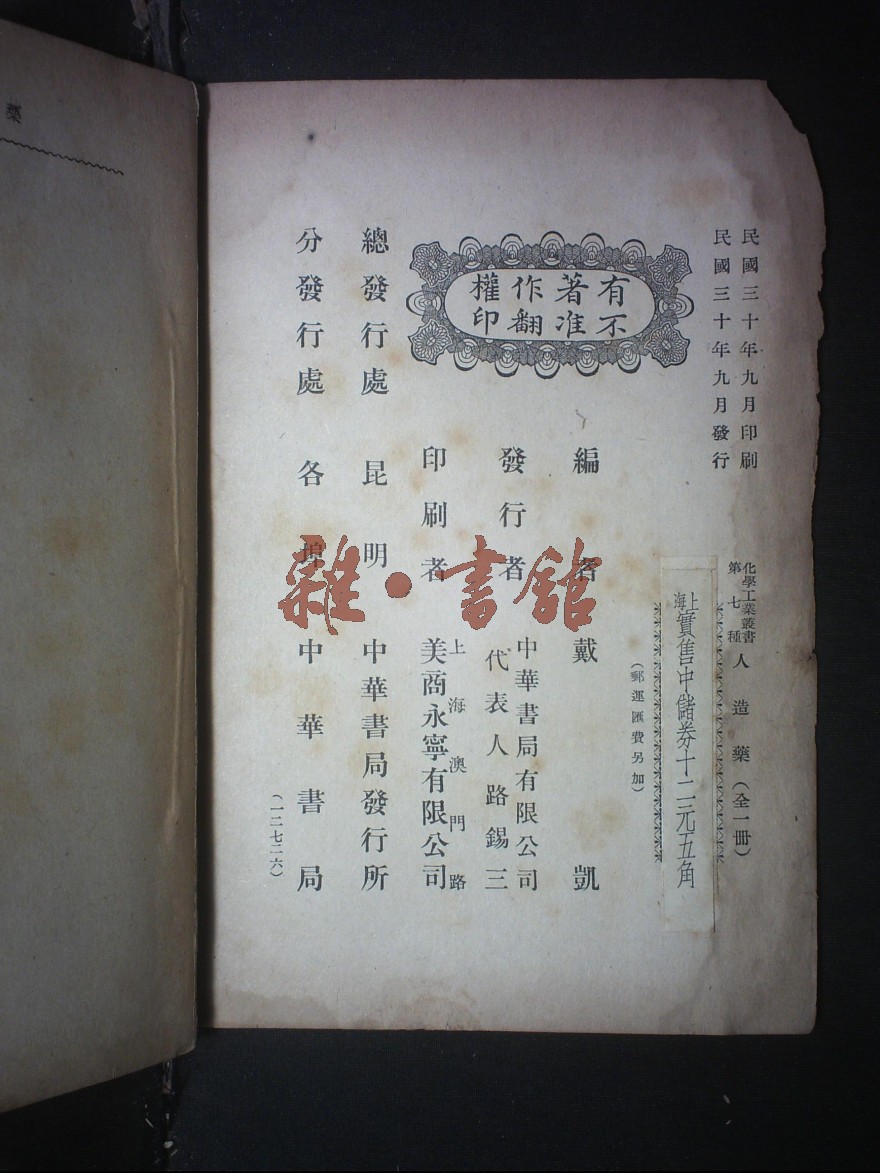 民國三十年九月印刷
民國三十年九月發行
化學工業叢書
第七種
人造藥（全一冊）
上海
實售中儲券十二元五角
（郵運匯費另加）
有著作權
不准翻印
編者 戴凱
發行者
中華書局有限公司
代表人路錫三
印刷者
上海澳門路
美商永寧有限公司
總發行處 昆明 中華書局發行所
分發行處 各埠 中華書局
（一二七二六）
雜·書館
藥